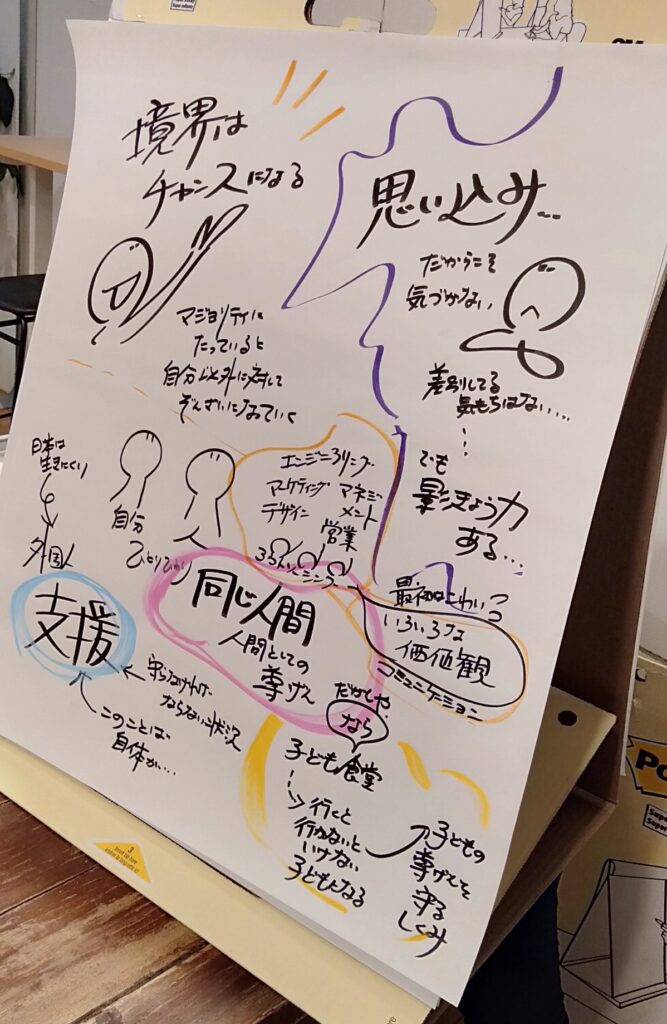 境界は
チャンスになる
思い込み…
だからこそ
気づかない
マジョリティに
たっていると
自分以外に対して
ぞんざいになっていく
差別してる
気もちはない……
でも
影きょう力
ある…
日本は
生きにくい
外国人
自分
ひとりひとり
エンジニアリング
マーケティング
マネジメント
デザイン
営業
同じ人間
人間としての
尊げん
最初はこわい
いろいろな
価値観
コミュニケーション
支援
守らなければ
ならない状況
このことば
自体が…
だがしや
なら
子ども食堂
行くと
行かないと
いけない
子どもになる
子どもの
尊げんを
守る
しくみ
3